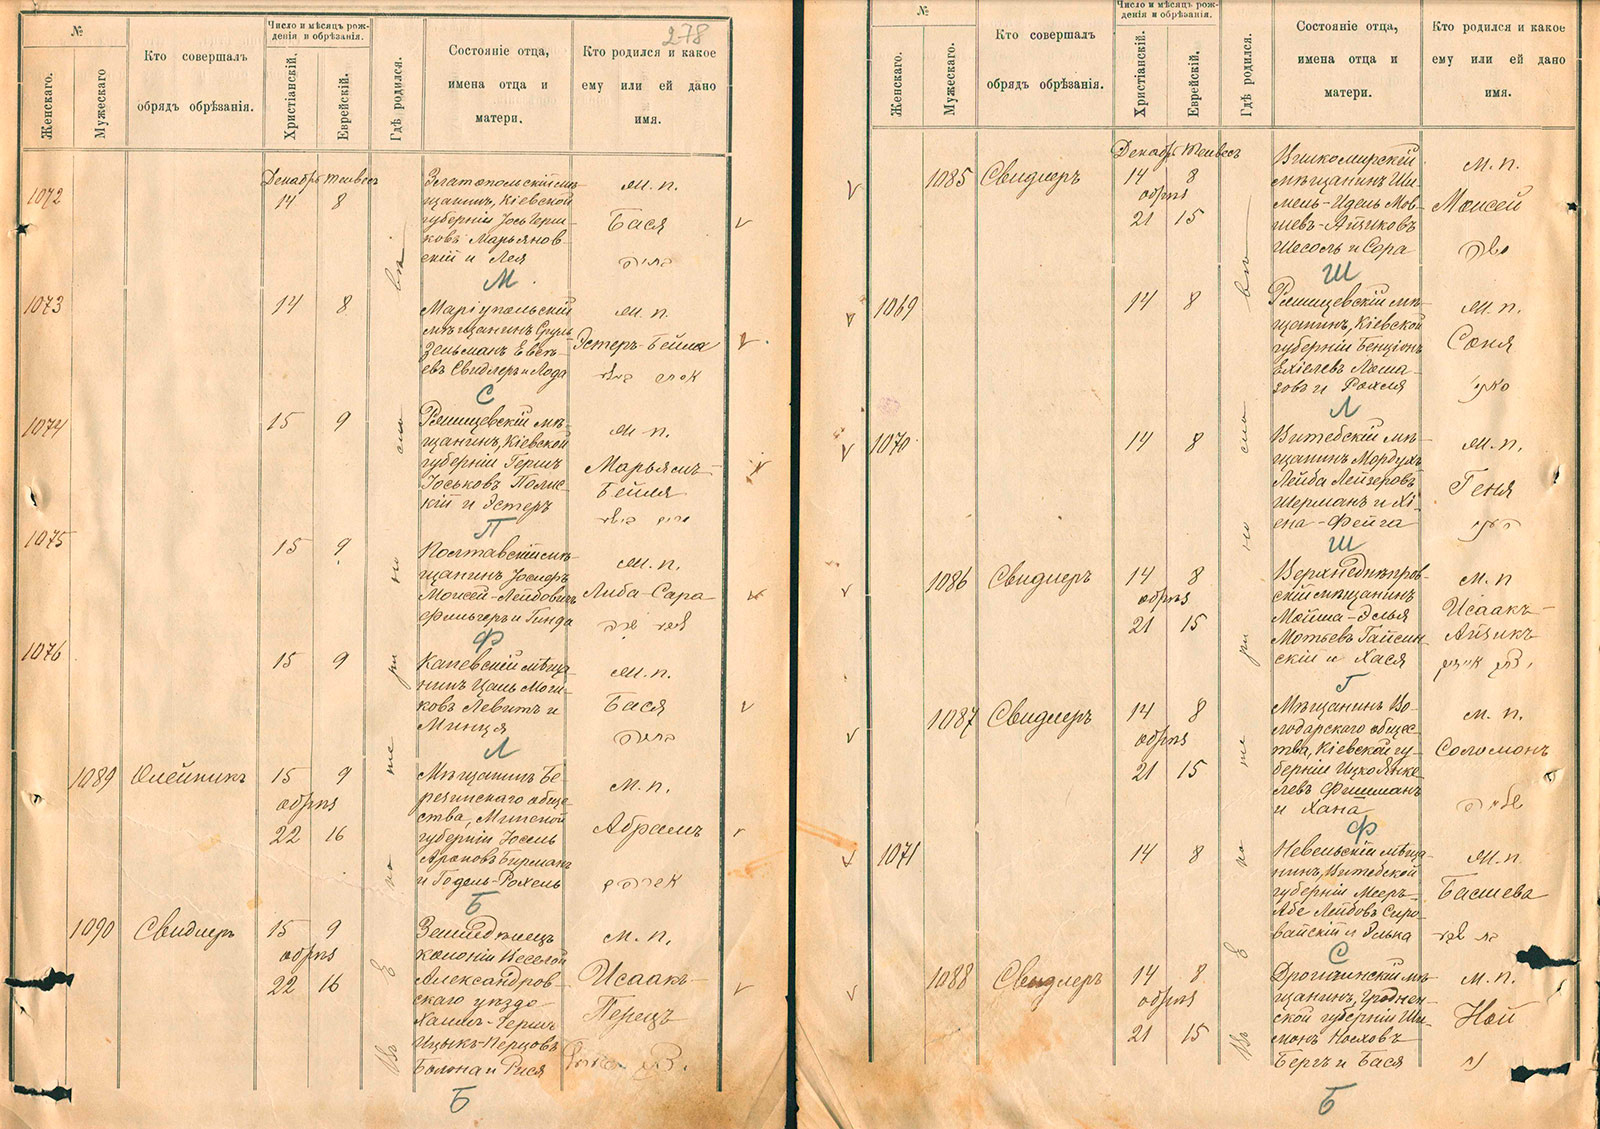 278
№
Женскаго.
Мужескаго
Кто совершалъ
обрядъ обрѣзанія.
Число и мѣсяцъ рож-
денія и обрѣзанія.
Христіанскій.
Еврейскій.
Гдѣ родился.
Состояніе отца,
имена отца и
матери.
Кто родился и какое
ему или ей дано
имя.
Въ Екатеринославѣ
1072
Декабрь Тейвесъ
14 8
Златопольскій мѣ-
щанинъ, Кіевской
губерніи Іось Герш-
ковъ Марьянов-
скій и Лея
М
м. п.
Бася
1073
14 8
Маріупольскій
мѣщанинъ Сруль
Зельманъ
Свидлеръ и
С
м. п.
Эстеръ-Бейла
1074
15 9
мѣ-
щанинъ, Кіевской
губерніи Гершъ
Іоськовъ Полис-
кій и Эстеръ
П
м. п.
Марьямъ-
Бейля
1075
15 9
Полтавскій мѣ-
щанинъ Іосифъ
Моисей-Лейбовичъ
и Гинда
Ф
м. п.
Либа-Сара
1076
15 9
Каневскій мѣща-
нинъ
ковъ Левитъ и
Минця
Л
м. п.
Бася
1089
Олейникъ
15 9
обрѣз
22 16
Мѣщанинъ Бе-
резинскаго обще-
ства, Минской
губерніи Іосель
Ароновъ Бирманъ
и Годель-Рохель
Б
м. п.
Абрамъ
1090
Свидлеръ
15 9
обрѣз
22 16
колоніи Веселой
Александров-
скаго уѣзда
Хаимъ-Гершъ
Ицыкъ-Перцовъ
и Рися
Б
м. п.
Исаакъ-
Перецъ
№
Женскаго.
Мужескаго.
Кто совершалъ
обрядъ обрѣзанія.
Число и мѣсяцъ рож-
денія и обрѣзанія.
Христіанскій.
Еврейскій.
Гдѣ родился.
Состояніе отца,
имена отца и
матери.
Кто родился и какое
ему или ей дано
имя.
Въ Екатеринославѣ
1085
Свидлеръ
Декабрь Тейвесъ
14 8
обрѣз
21 15
Вилкомирскій
мѣщанинъ Ши-
мель-Идель Мов-
шевъ-Айзиковъ
и Сора
Ш
м. п.
Моисей
משה
1069
14 8
мѣ-
щанинъ, Кіевской
губерніи Бенціонъ
Ехіелевъ Лоша-
ковъ и Рохля
Л
м. п.
Соня
1070
14 8
Витебскій мѣ-
щанинъ Мордухъ
Лейба Лейзеровъ
Шерманъ и Хі-
ена-Фейга
Ш
м. п.
Геня
1086
Свидлеръ
14 8
обрѣз
21 15
Верхнеднѣпров-
скій мѣщанинъ
Мойша-Эльья
Мотьевъ Гайсин-
скій и Хася
Г
м. п
Исаакъ-
Айзикъ
1087
Свидлеръ
14 8
обрѣз
21 15
Мѣщанинъ Во-
лодарскаго общес-
тва, Кіевской гу-
берніи Ицко Янке-
левъ Фишманъ
и Хана
Ф
м. п.
Соломонъ
1071
14 8
Невельскій мѣща-
нинъ, Витебской
губерніи Мееръ-
Абе Лейбовъ Сиро-
вайскій и Элька
С
м. п.
Басшева
1088
Свидлеръ
14 8
обрѣз
21 15
Дрогичинскій мѣ-
щанинъ, Гроднен-
ской губерніи Ши-
монъ Носховъ
Бергъ и Бася
Б
м. п.
Ной
נח